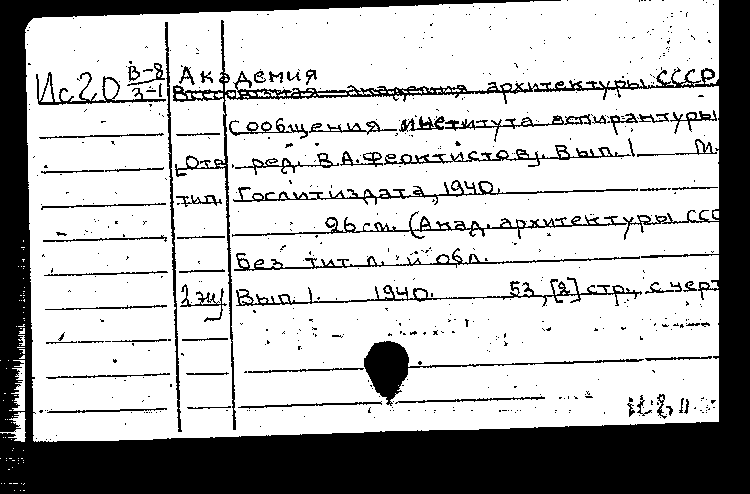 Академия
Ис20 В-8/3-1 Всесоюзная академия архитектуры СССР.
Сообщения института аспирантуры
[Отв. ред. В.А. Феоктистов]. Вып. 1 М.
тип. Гослитиздата, 1940.
26 см. (Акад. архитектуры ССС
Без тит. л. и обл.
2 экз Вып. 1. 1940. 53, [2] стр., с черт